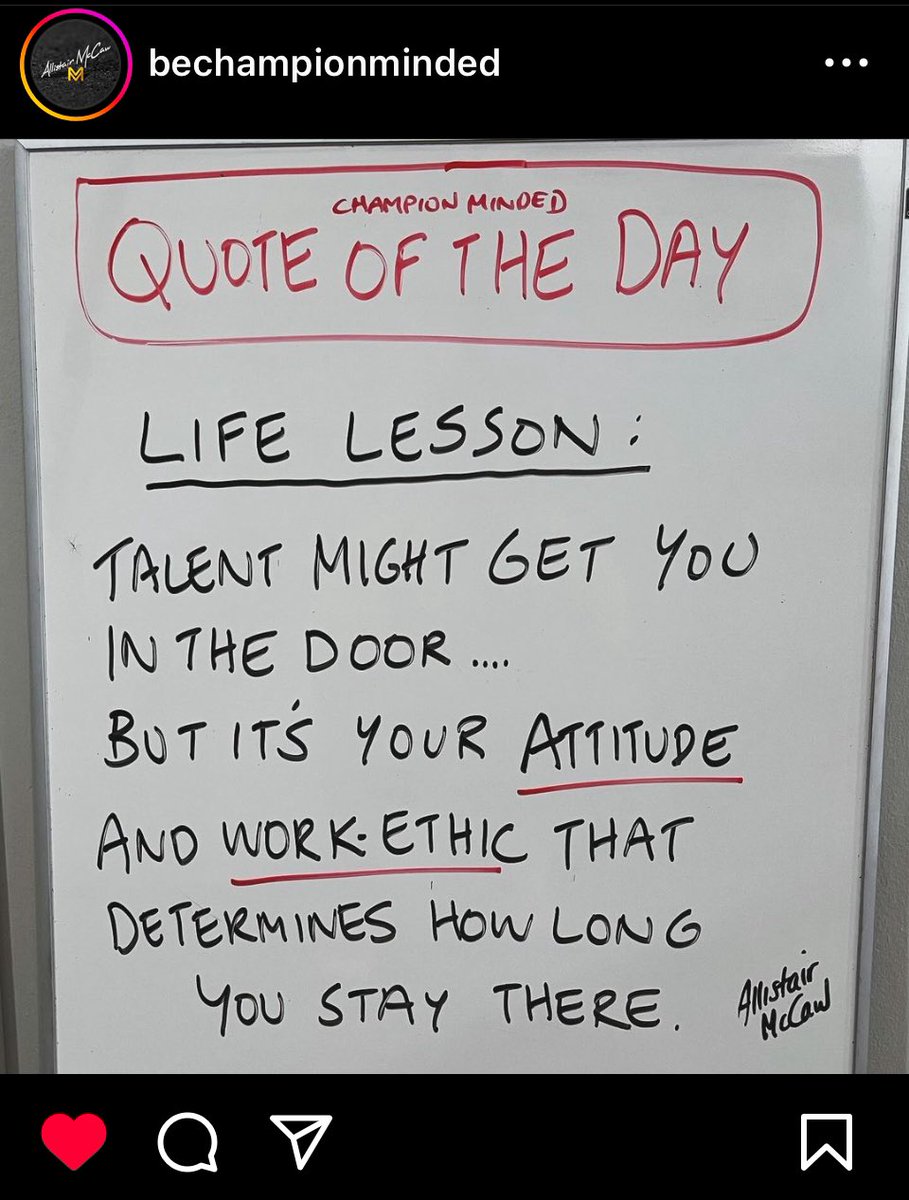 Allistair McCaw
M
bechampionminded
CHAMPION MINDED
QUOTE OF THE DAY
LIFE LESSON:
TALENT MIGHT GET YOU
IN THE DOOR....
BUT IT'S YOUR ATTITUDE
AND WORK-ETHIC THAT
DETERMINES HOW LONG
YOU STAY THERE.
Allistair
McCaw